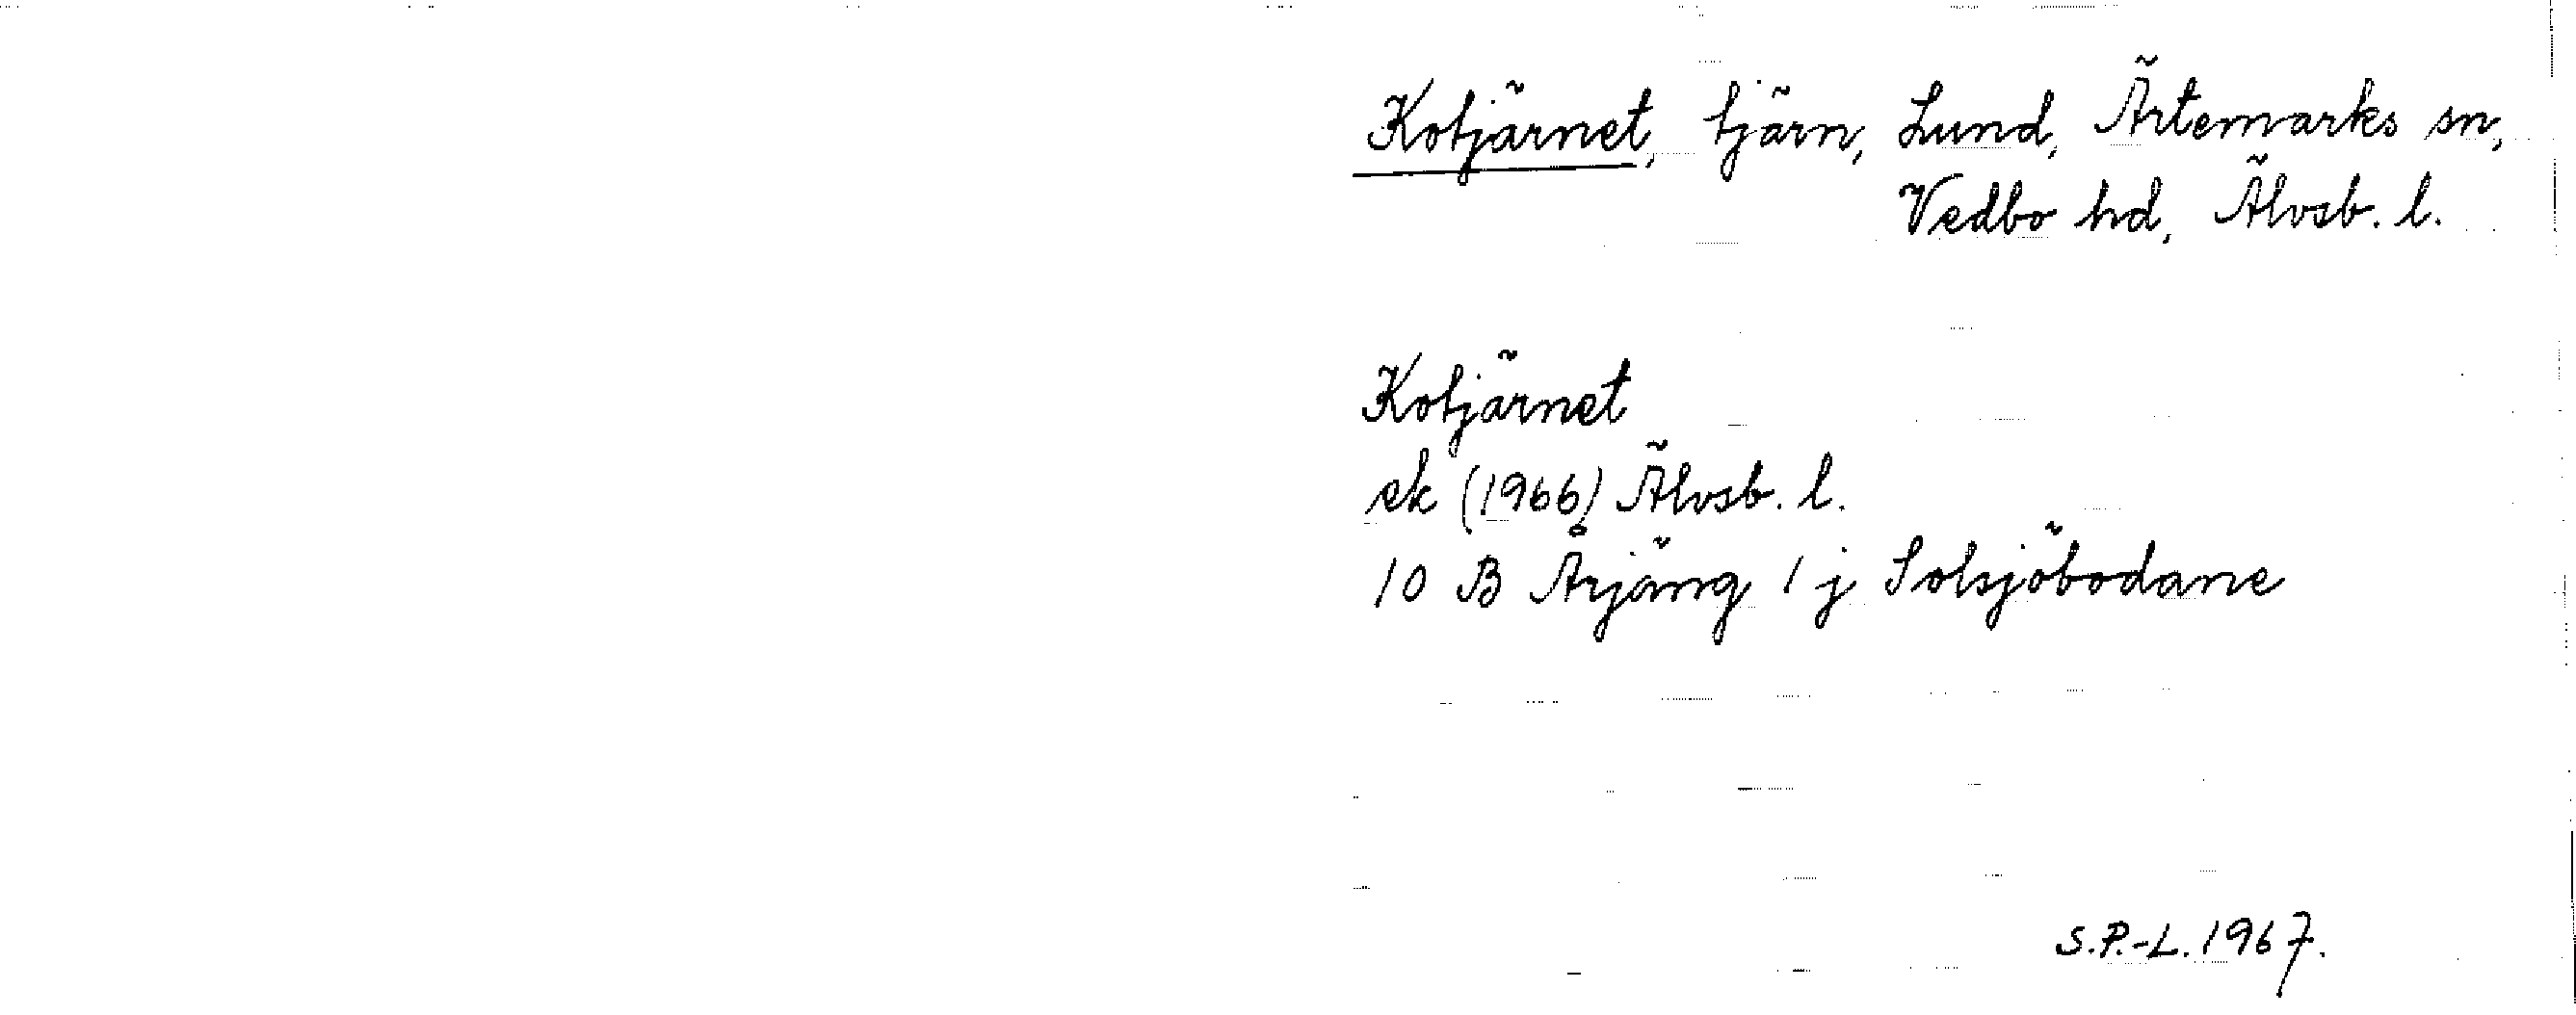 Kotjärnet, tjärn, Lund, Ärtemarks sn,
Vedbo hd, Älvsb. l.
Kotjärnet
ek (1966) Älvsb. l.
10 B Årjäng 1 j Solsjöbodane
S.P.-L. 1967.